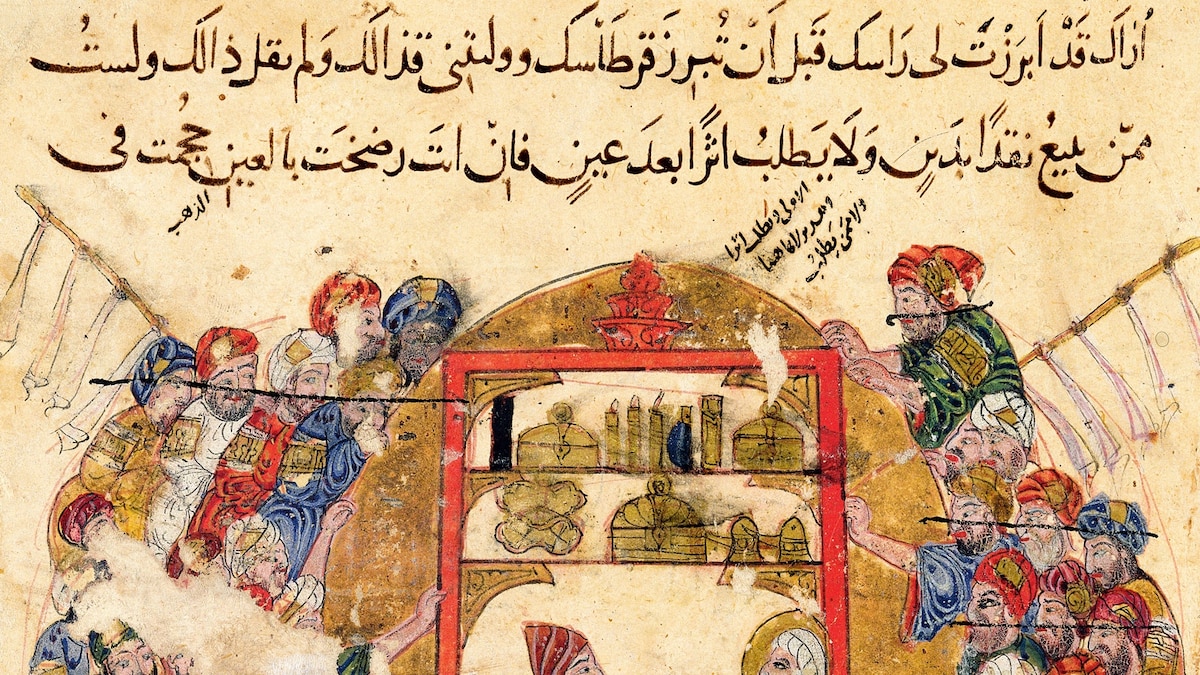 اُراك قَدْ اَبرَزْتَ لى رَاسك قَبل اَنْ تُبرز قرطَاسَك ووليتنى قذالك وَلم تقل ذالك ولستُ
ممّن يبيعُ نقدًا بدَينٍ وَلَا يَطلبُ اثرًا بعدَ عَينٍ فانّ انتَ رضختَ بالعينِ حجمت فى
الذهب
ولا ممن يطلب